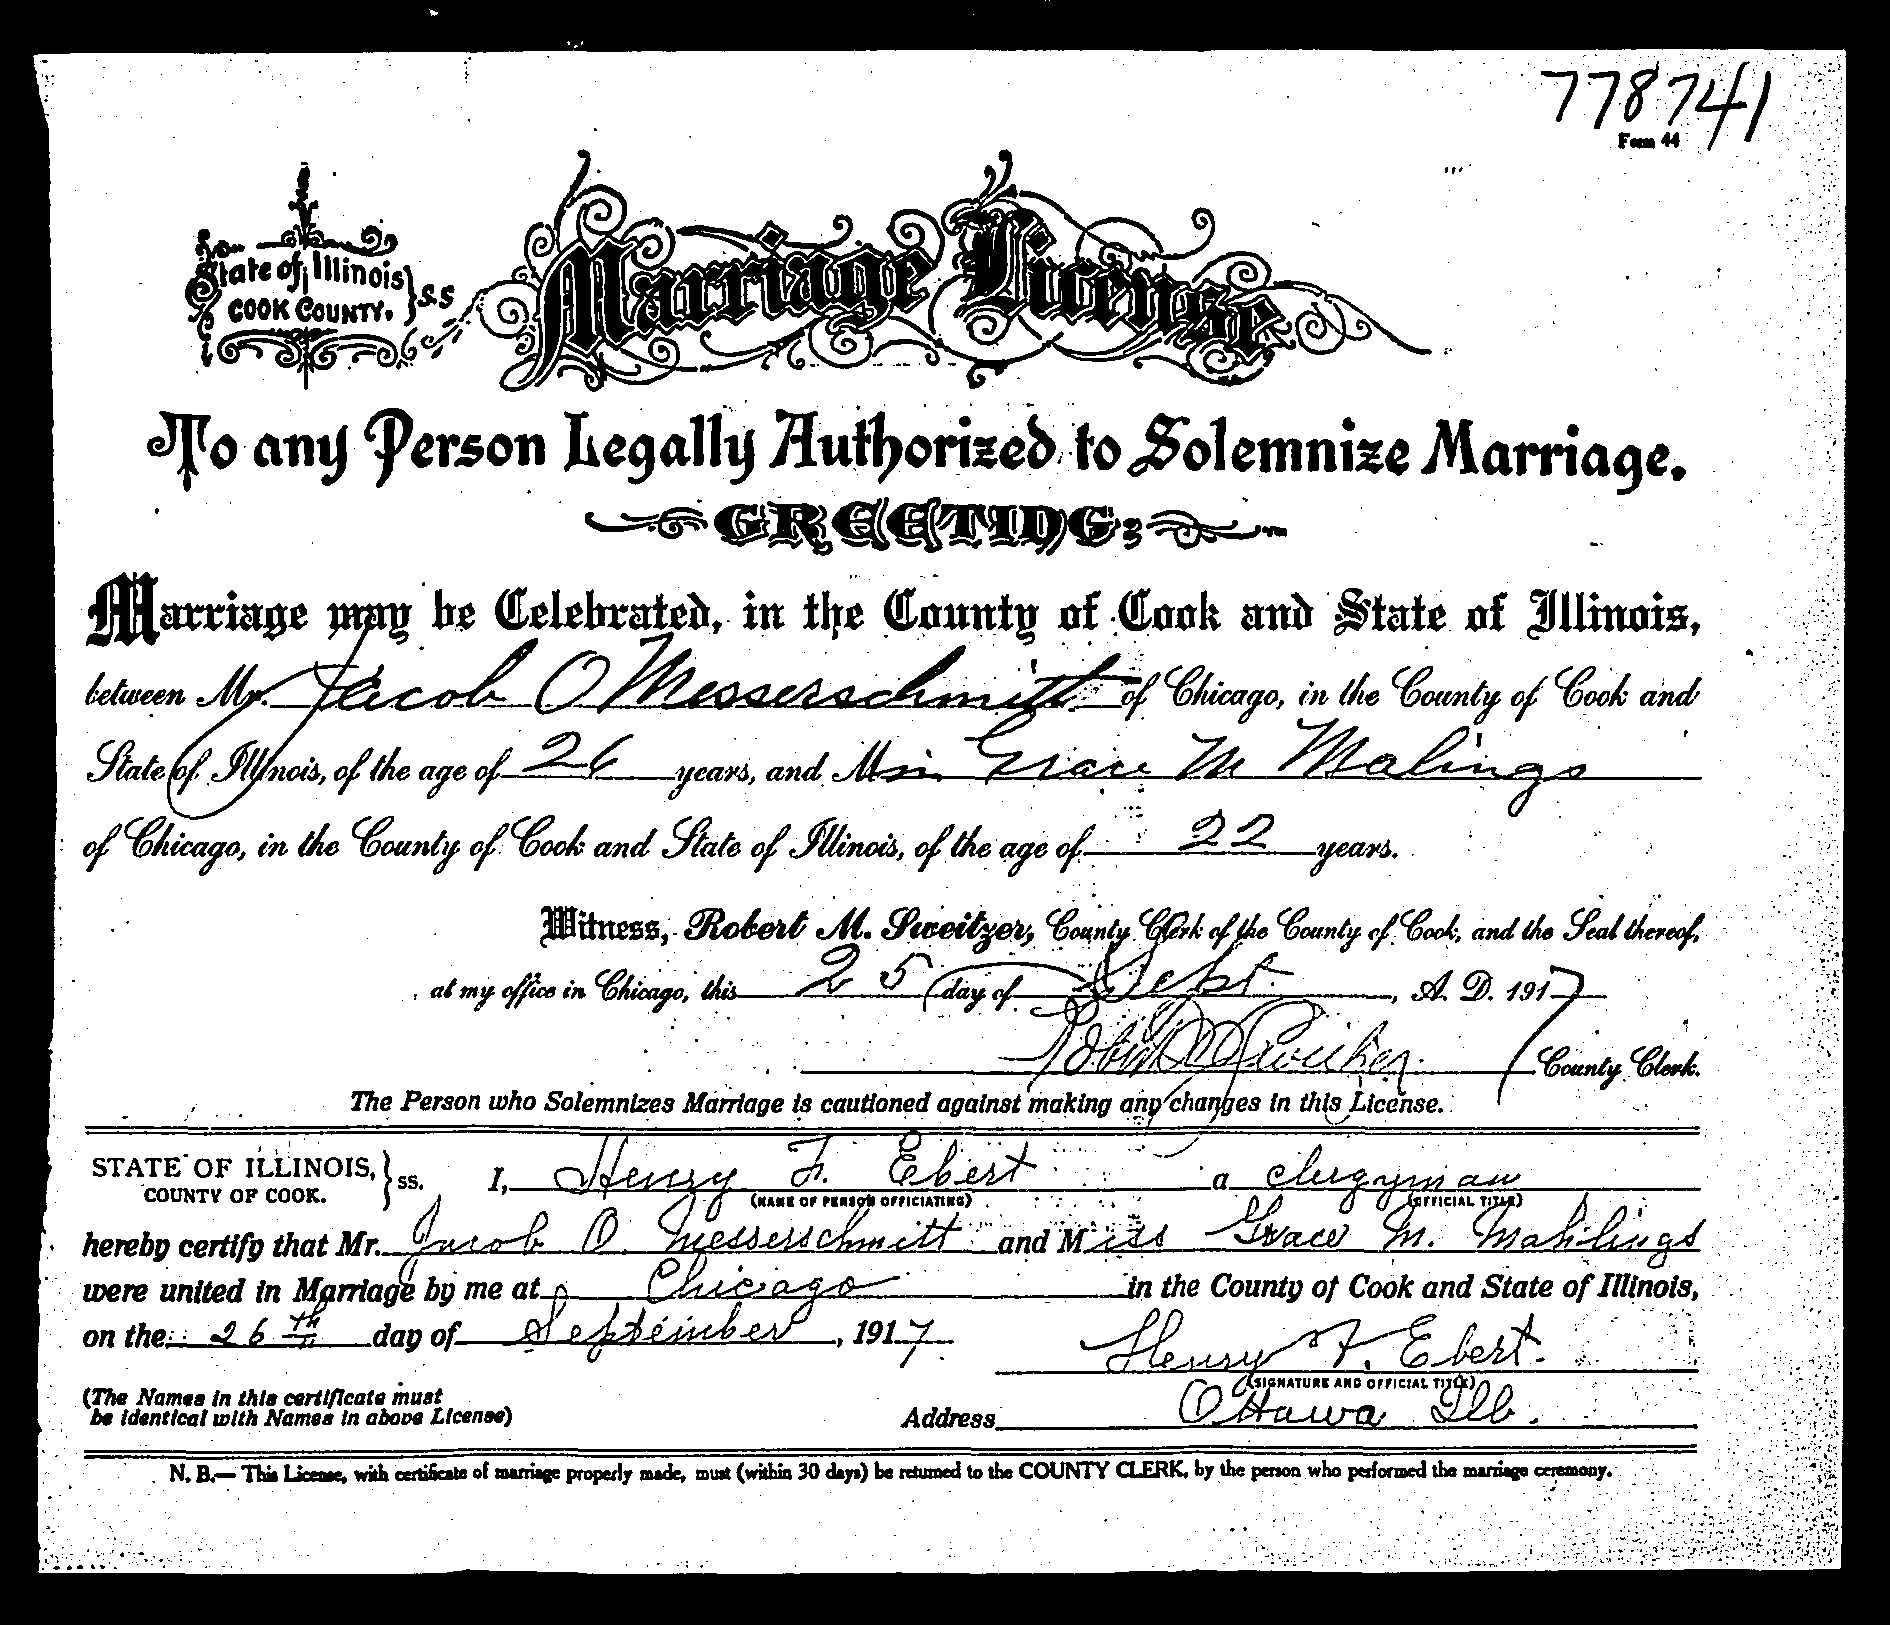 778741
Form 44
State of Illinois } S.S
COOK COUNTY.
Marriage License
To any Person Legally Authorized to Solemnize Marriage.
GREETING:
Marriage may be Celebrated, in the County of Cook and State of Illinois,
between Mr. Jacob O Messerschmitt of Chicago, in the County of Cook and
State of Illinois, of the age of 26 years, and Miss Grace M Malings
of Chicago, in the County of Cook and State of Illinois, of the age of 22 years.
Witness, Robert M. Sweitzer, County Clerk of the County of Cook, and the Seal thereof,
at my office in Chicago, this 25 day of Sept. , A. D. 1917
Robert M Sweitzer County Clerk.
The Person who Solemnizes Marriage is cautioned against making any changes in this License.
STATE OF ILLINOIS, } ss. I, Henry F. Ebert a clergyman
COUNTY OF COOK. (NAME OF PERSON OFFICIATING) (OFFICIAL TITLE)
hereby certify that Mr. Jacob O. Messerschmitt and Miss Grace M. Mahlings
were united in Marriage by me at Chicago in the County of Cook and State of Illinois,
on the 26th day of September , 1917. Henry F. Ebert.
(SIGNATURE AND OFFICIAL TITLE)
(The Names in this certificate must
be identical with Names in above License) Address Ottawa Ill.
N. B.— This License, with certificate of marriage properly made, must (within 30 days) be returned to the COUNTY CLERK, by the person who performed the marriage ceremony.